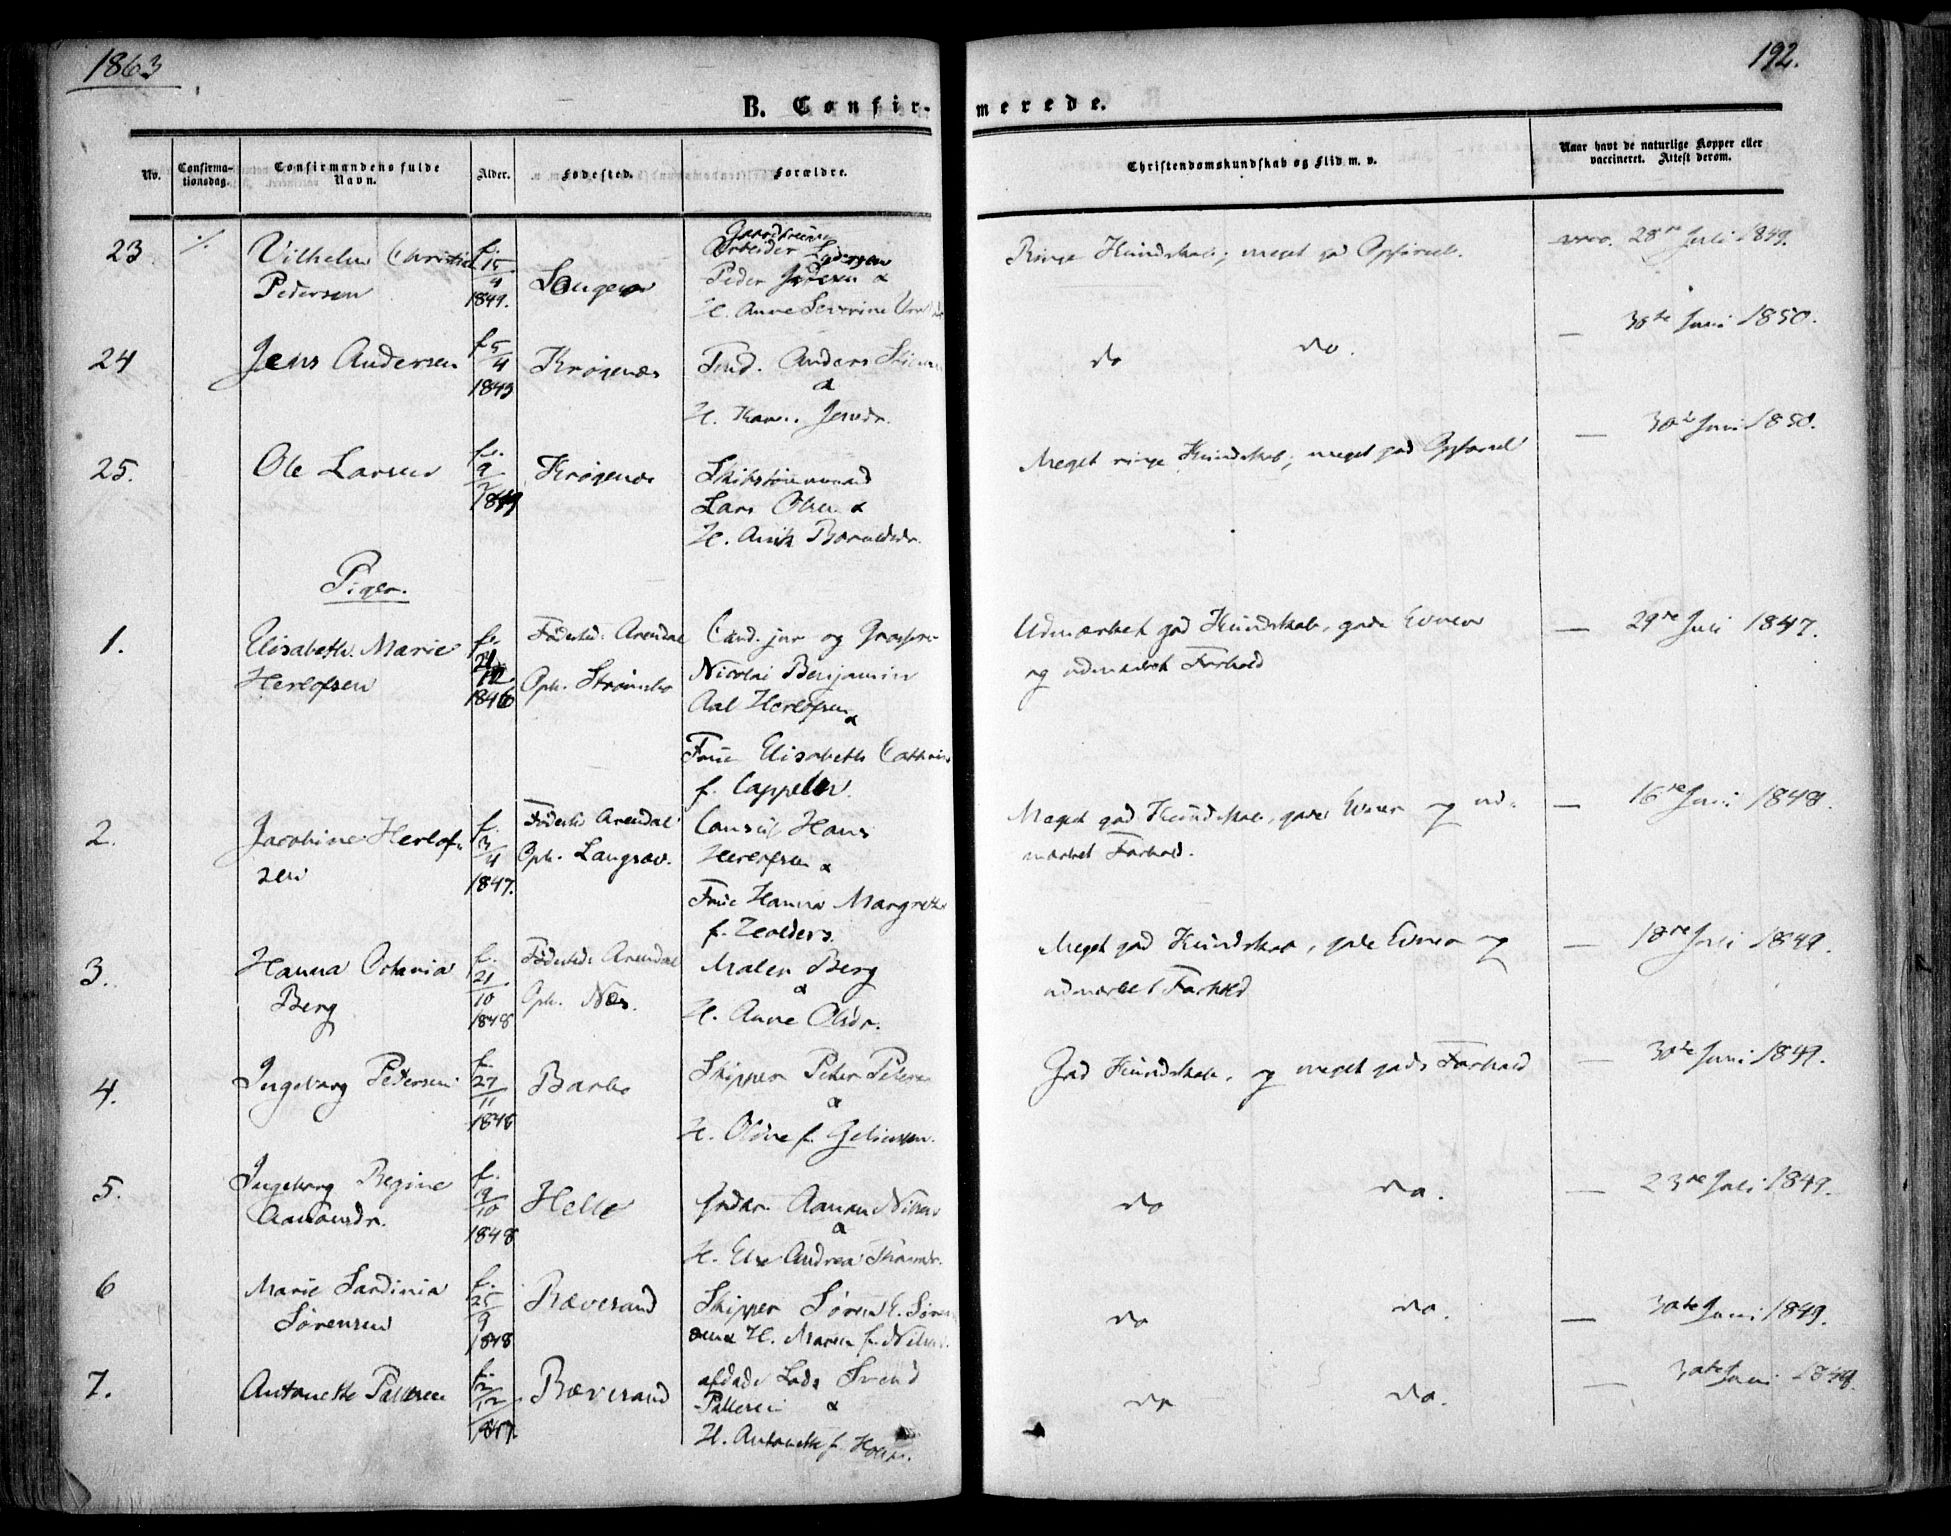 1863
192.
B. Confirmerede.
No.
Confirmationsdag.
Confirmandens fulde Navn.
Alder.
Fødested.
Forældre.
Christendomskundskab og Flid m. v.
Naar havt de naturlige Kopper eller vaccineret. Attest derom.
23
Vilhelm Christian
Pedersen
f. 15/4 1849.
Arbeider
Peder
H. Anne Severine
Ringe Kundskab; meget god Opførsel.
vacc. 28de Juli 1849.
24
Jens Andersen
f. 5/4
Krøgenæs
Tmd. Anders
&
H. Karen Jensdr.
do do.
— 30te Juni 1850.
25.
Ole Larsen
f. 9/2 1849
Krøgenæs
Skibstømmermand
Lars Olsen &
H.
Meget ringe Kundskab; meget god Opførsel
— 30te Juni 1850.
Piger.
1.
Elisabeth Marie
Herlofsen
f. 1846
Fødested: Arendal
Oph. Strømsbo
Cand. jur og
Nicolai Benjamin
Aal Herlofsen &
Frue Elisabeth
f. Cappelen.
Udmærket god Kundskab, gode Evner
og udmærket Forhold
— 29de Juli 1847.
2.
Jacobine Herlof-
zen
f. 3/4 1847.
Fødested Arendal
Oph. Langsæv.
Consul Hans
Herlofsen &
Frue Hanna Margrethe
f.
Meget god Kundskab, gode Evner og ud-
mærket Forhold.
— 16de Juni 1848.
3.
Hanna Octavia
Berg
f. 21/10 1848
Fødested: Arendal
Oph. Næs.
Maler Berg
&
H. Anne Olsdr.
Meget god Kundskab, gode Evner og
udmærket Forhold
— 18de Juli 1849.
4.
Ingeborg Petersen
f. 27/11 1848
Barbo
Skipper Peter Petersen
&
H. Oline f.
God Kundskab, og meget godt Forhold
— 30te Juni 1849.
5.
Ingeborg Regine
Aanonsdr.
f. 9/10 1848
Helle
Aanon Nilsen
&
H. Else Andrea
do do.
— 23de Juli 1849.
6
Marie Sardinia
Sørensen
f. 25/9 1848
Ræversand
Skipper Søren E. Søren-
sen & H. Maren f. Nilsen.
do do.
— 30te Juni 1849.
7.
Antonette Pallesen
f.
Ræversand
afdøde Lods Svend
Pallesen &
H. Antonette f.
do do.
— 30te Juni